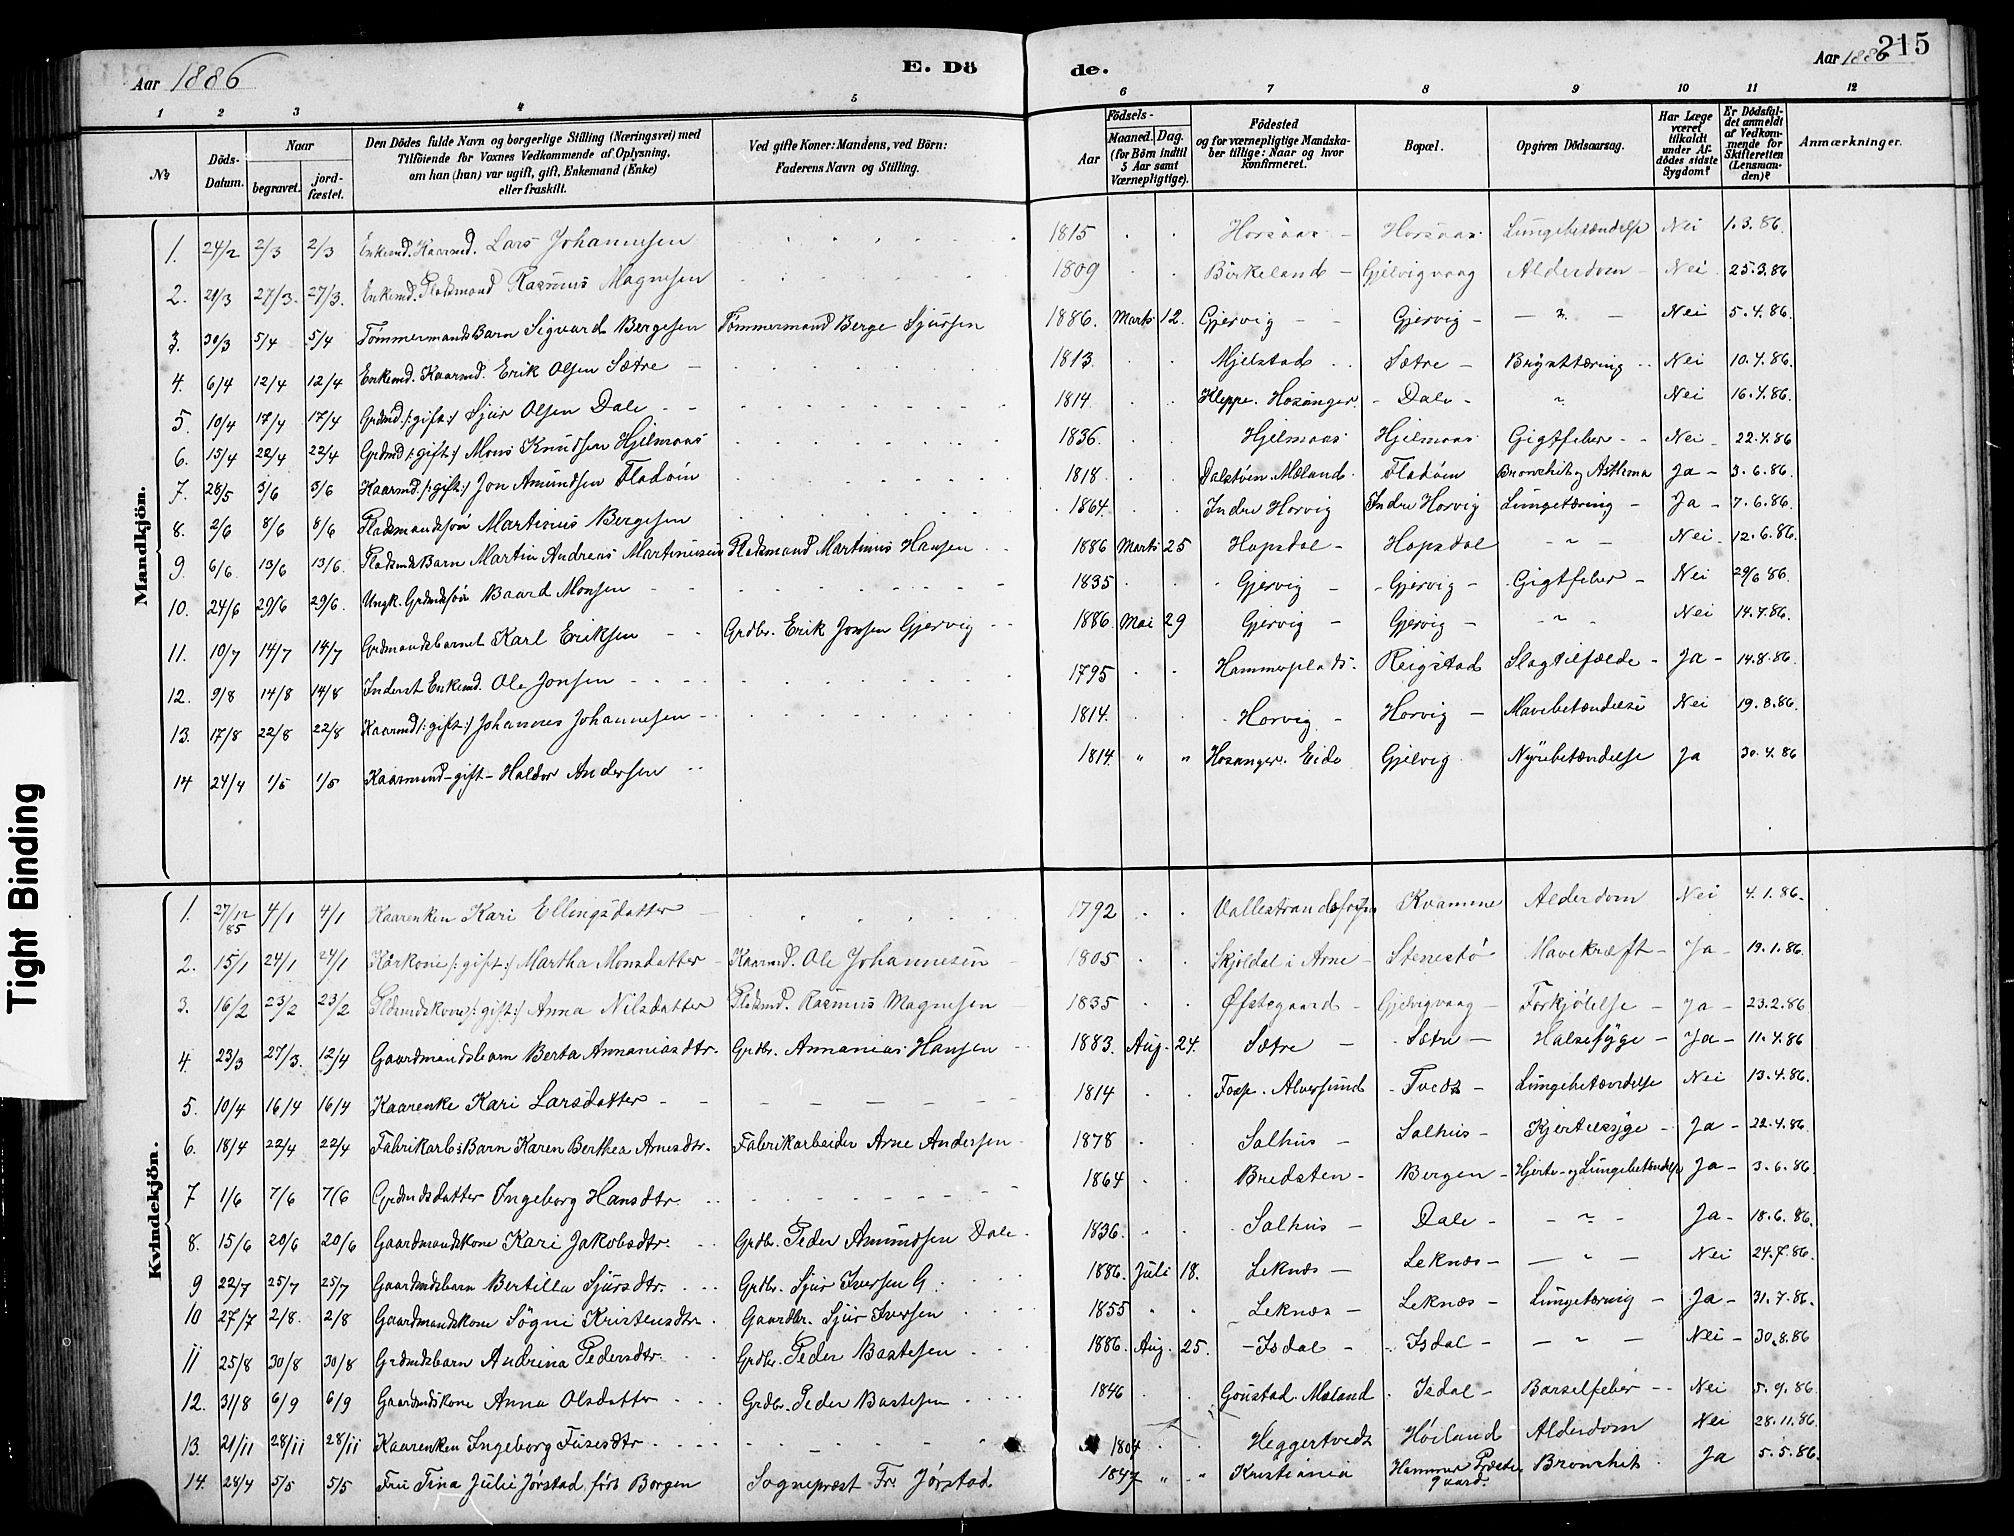 Aar 1886
E. Dö
de.
Aar 1886
215
1 2 3 4 5 6 7 8 9 10 11 12
№
Döds-Datum.
Naar
begravet.
jordfæstet.
Den Dödes fulde Navn og borgerlige Stilling (Næringsvei) med
Tilföiende for Voxnes Vedkommende af Oplysning,
om han (hun) var ugift, gift, Enkemand (Enke)
eller fraskilt.
Ved gifte Koner: Mandens, ved Börn:
Faderens Navn og Stilling.
Födsels-
Aar
Maaned. Dag.
(for Börn indtil
5 Aar samt
Værnepligtige).
Födested
og for værnepligtige Mandskaber tillige: Naar og hvor
konfirmeret.
Bopæl.
Opgiven Dödsaarsag.
Har Læge
været
tilkaldt
under Afdödes sidste
Sygdom?
Er Dödsfaldet anmeldt
af Vedkommende for
Skifteretten
(Lensmanden)?
Anmærkninger.
Mandkjön.
1. 24/2 2/3 2/3 Enkemd. Kaarmd. Lars Johannesen 1815 Horsaas Horsaas Lungebetændelse Nei 1.3.86.
2. 20/3 27/3. 27/3. Enkemd. Pladsmand Rasmus Magnesen 1809 Birkeland Gjelvigvaag Alderdom Nei 25.3.86
3. 30/3 5/4 5/4 Tømmermands Barn Sigvard Bergesen Tømmermand Berge Sjursen 1886. Marts 12. Gjervig Gjervig — ? — Nei 5.4.86.
4. 6/4 12/4 12/4 Enkemd. Kaarmd. Erik Olsen Sætre 1813. Mjelstad Sætre Brysttæring Nei 10.4.86.
5. 10/4 17/4 17/4 Grdmd /: gift :/ Sjur Olsen Dale 1814. Kleppe. Hosanger. Dale ? Nei 16.4.86.
6. 15/4 22/4 22/4 Grdmd /: gift :/ Mons Knudsen Hjelmaas 1836. Hjelmaas Hjelmaas Gigtfeber Nei 22.4.86
7. 28/5 3/6 3/6 Kaarmd. /: gift :/ Jon Amundsen Fladøin 1818 Dalstøen. Mæland. Fladøin Bronchit og Asthma Ja 3.6.86.
8. 2/6 8/6 8/6 Pladsmandssøn Martinus Bergesen 1864. Indre Horvig Indre Horvig Lungetæring Ja 7.6.86.
9. 6/6. 13/6 13/6 Pladsmds Barn Martin Andreas Martinusen Pladsmand Martinus Hansen 1886 Marts 25 Hopsdal Hopsdal — " — Nei 12.6.86.
10. 24/6 29/6 29/6. Ungk. Grdmdssøn Baard Monsen 1835 Gjervig Gjervig Gigtfeber Nei 29/6 86.
11. 10/7 14/7 14/7 Grdmandsbarnet Karl Eriksen Grdbr. Erik Jonsen Gjervig 1886. Mai 29 Gjervig Gjervig — " — Nei 14.7.86.
12. 9/8 14/8 14/8 Inderst Enkemd. Ole Jonsen 1795 Hammersplads. Reigstad Slagtilfælde Ja 14.8.86.
13. 17/8 22/8 22/8 Kaarmd /: gift :/ Johannes Johannesen 1814. Horvig Horvig Mavebetændelse Nei 19.8.86.
14 24/4 1/5 1/5 Kaarmand – gift – Haldor Andersen 1814. " " Hosanger. Eide Gjelvig. Nyrebetændelse Ja 30.4.86
Kvindekjön.
1. 27/12 85 4/1 4/1 Kaarenken Kari Ellingsdatter 1792 Kvamme Alderdom Nei 4.1.86.
2. 15/1 24/1 24/1 Karkone /: gift :/ Martha Monsdatter Kaarmd. Ole Johannesen 1805 Skjoldal i Arne Stenestø Mavekræft Ja 19.1.86.
3. 16/2 23/2 23/2 Pldsmdskone /: gift :/ Anna Nilsdatter Pladsmd. Rasmus Magnesen 1835 Øfstegaard Gjelvigvaag Forkjølelse Ja 23.2.86.
4. 23/3 27/3. 12/4 Gaardmandsbarn Berta Annaniasdtr. Grdbr. Annanias Hansen 1883. Aug. 24. Sætre Sætre Halsesyge Ja 11.4.86
5. 10/4 16/4 16/4 Kaarenke Kari Larsdatter 1814 Fosse. Alversund Tvedt Lungebetændelse Nei 13.4.86.
6. 18/4 22/4 22/4 Fabrikarb:s Barn Karen Berthea Arnesdtr. Fabrikarbeider Arne Andersen 1878 Salhus Salhus Kjertelsyge Ja 22.4.86.
7 1/6 7/6 7/6 Grdmdsdatter Ingeborg Hansdtr. 1864 Bredsten Bergen Hjerte- og Lungebetændelse Ja 3.6.86.
8. 15/6 20/6 20/6 Gaardmandskone Kari Jakobsdtr. Grdbr. Peder Amundsen Dale 1836. Salhus Dale — " — Ja 18.6.86.
9 22/7 25/7 25/7 Gaardmdsbarn Bertilla Sjursdtr. Grdbr. Sjur Iversen G. 1886. Juli 18. Leknæs Leknæs — " — Nei 24.7.86.
10 27/7 2/8. 2/8 Gaardmandskone Søgni Kristensdtr. Gaardbr. Sjur Iversen 1855 Leknæs Leknæs Lungetæring Ja 31.7.86.
11 25/8 30/8 30/8 Grdmdsbarn Andrina Pedersdtr. Grdbr. Peder Bastesen 1886. Aug. 25. Isdal Isdal — " — Nei 30.8.86
12. 31/8 6/9 6/9 Gaardmdskone Anna Olsdatter Grdbr. Peder Bastesen 1846 Gøustad. Mæland Isdal Barselfeber Nei 5.9.86.
13. 21/11 28/11 28/11 Kaarenken Ingeborg Fusesdtr 1804 Heggertvedt Høiland Alderdom Nei 28.11.86.
14. 28/4 5/5 5/5 Fru Tina Julie Jørstad, føds Borgen Sognepræst Fr. Jørstad 1847 " " Kristiania Hammer Præstegaard. Bronchit Ja 5.5.86.
Tight Binding